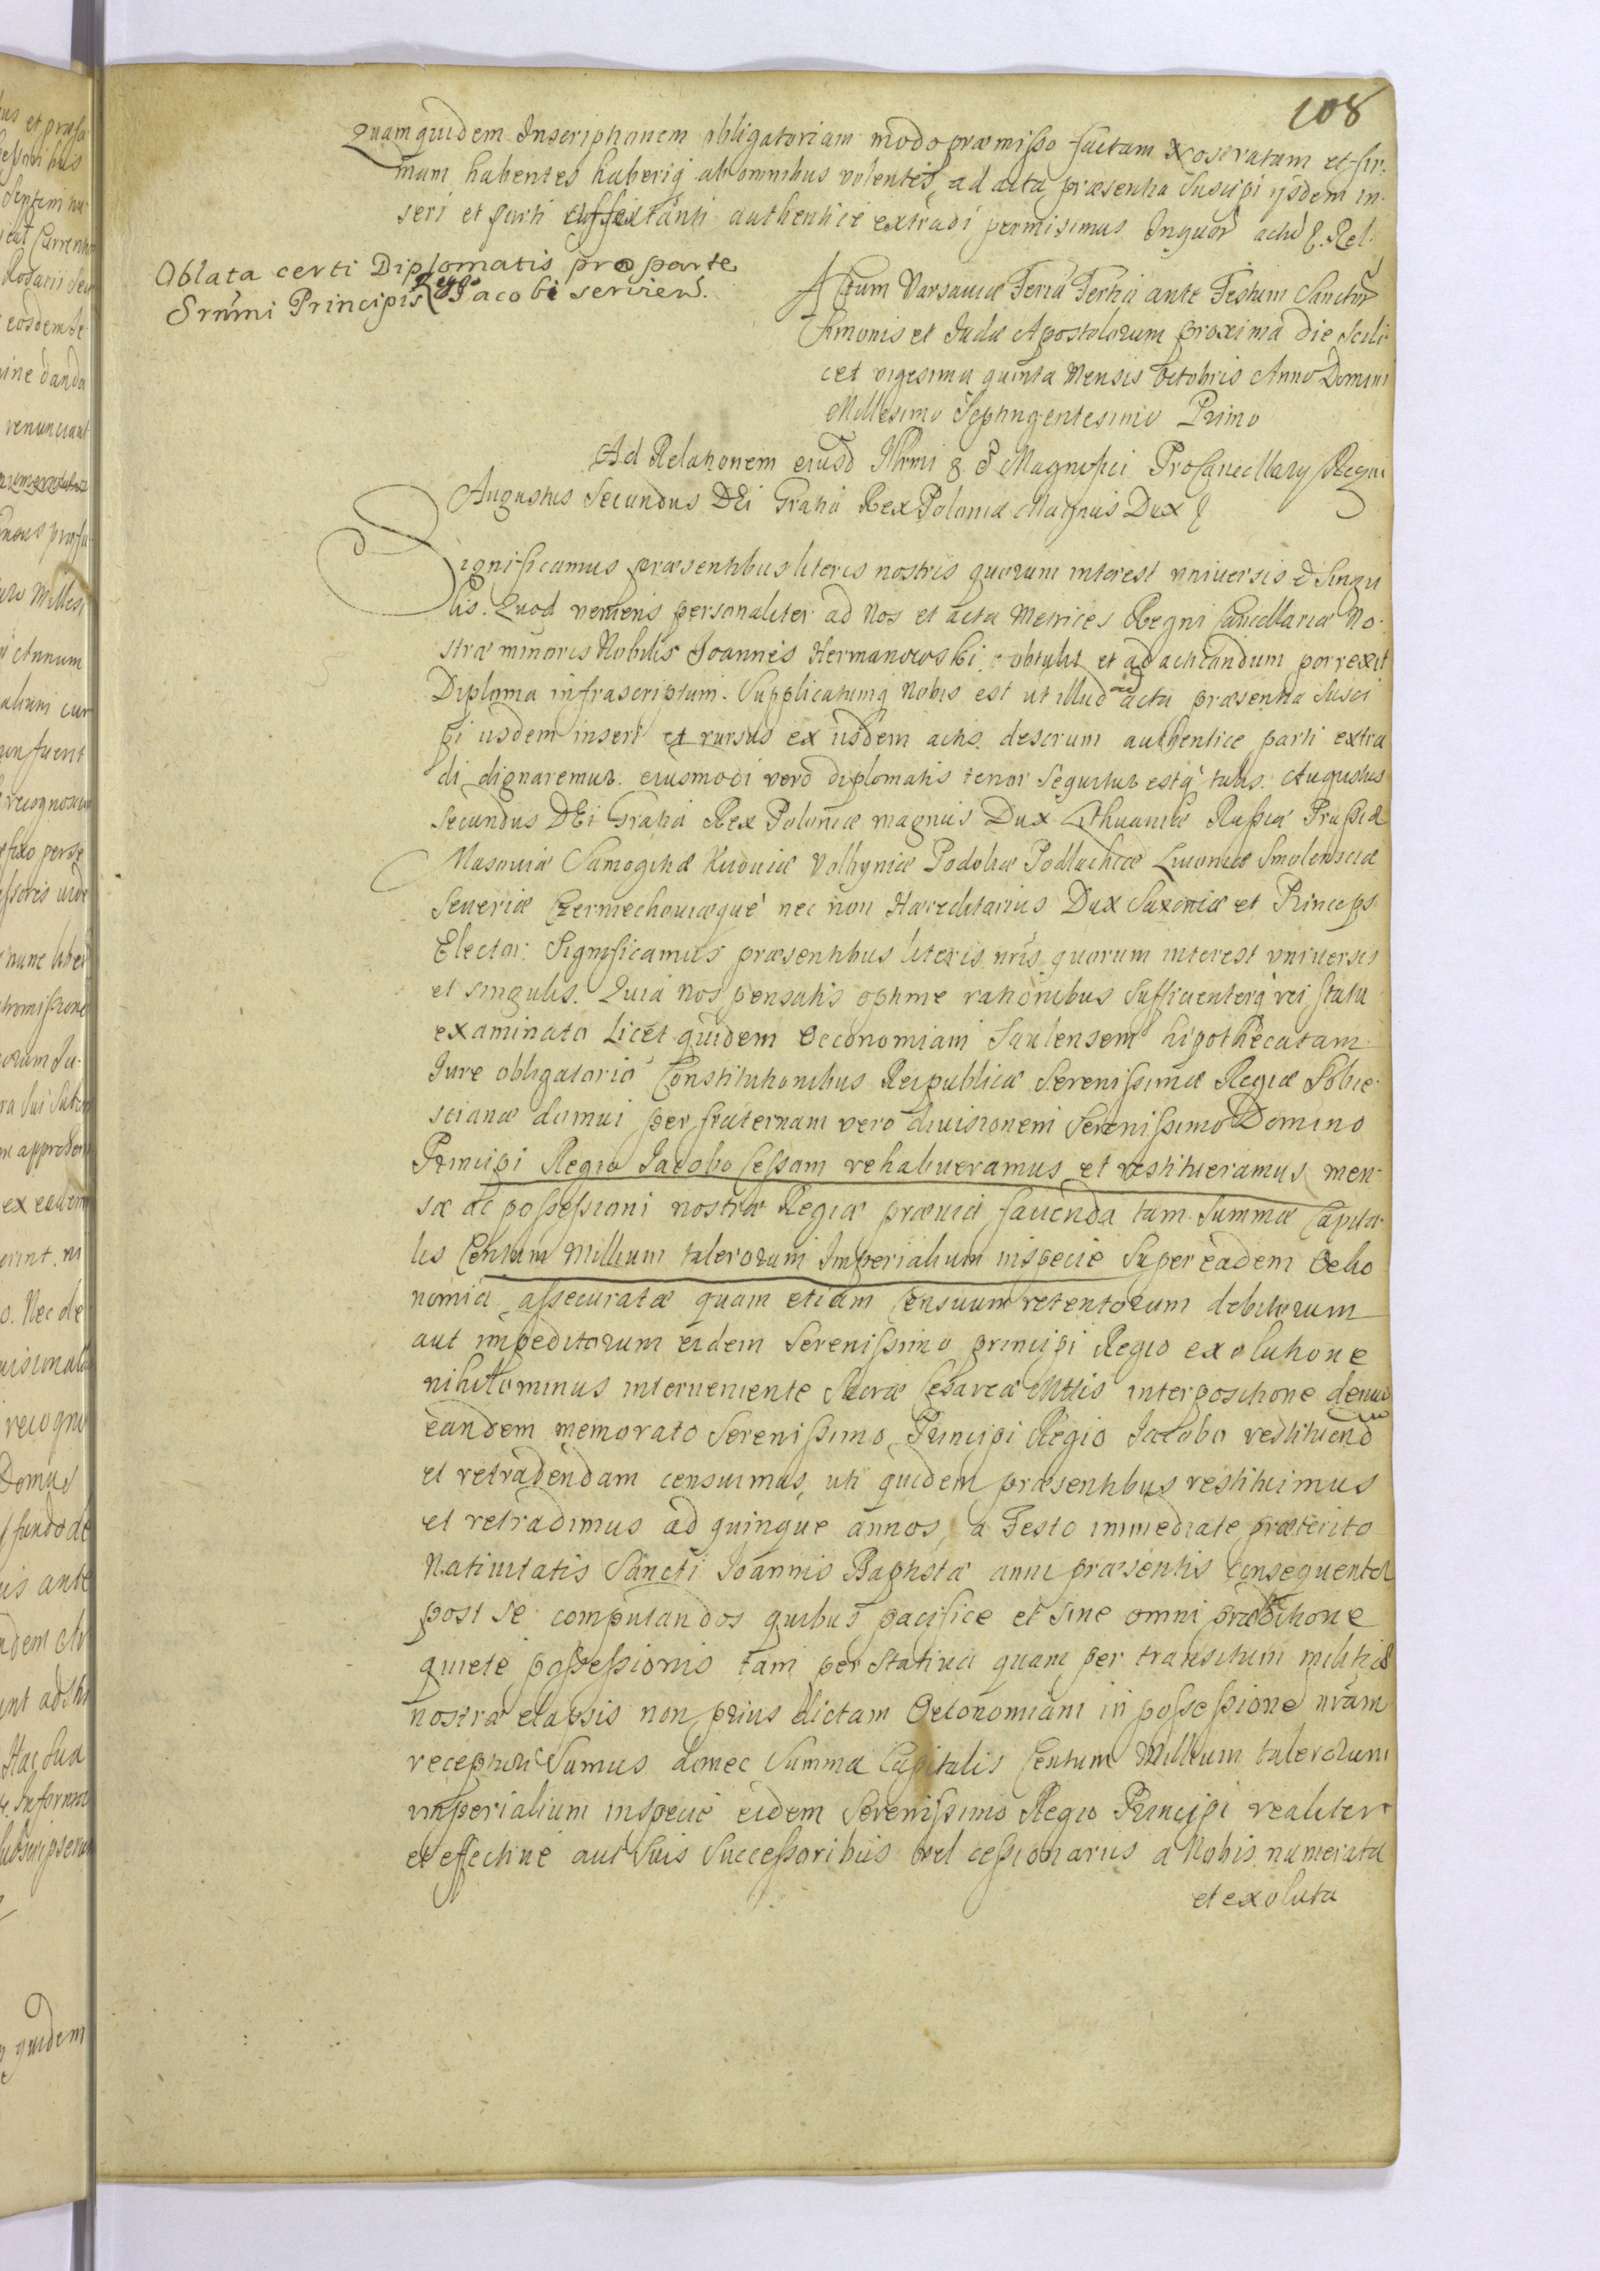 108
Quam quidem Inscriptionem obligatoriam modo præmisso factam et fir-
mam habentes haberiq ab omnibus volentes, ad acta præsentia Suscipi ijsdem in-
seri et parti authentice extradi permisimus Inquor actū & Rel.
Oblata certi Diplomatis pro parte
Srnmi Principis Regij Jacobi servien.
Actum Varsaviæ Feria Tertia ante Festum Sanctor
Simonis et Judæ Apostolorum proxima die Scili-
cet vigesima quinta Mensis Octobris Anno Domini
Millesimo Septingentesimo Primo
Ad Relationem eiusd Illrmi & P Magnifici ProCancellarij Regni
Augustus Secundus DEi Gratia Rex Poloniæ Magnus Dux &
Significamus præsentibus literis nostris quorum interest universis & Singu
lis. Quod veniens personaliter ad Nos et acta Metrices Regni Cancellariæ No-
stræ minoris Nobilis Joannes Hermanowski obtulit et ad acticandum porrexit
Diploma infrascriptum. Supplicatumq Nobis est ut illud ad acta præsentia Susci
pi iisdem inseri et rursus ex iisdem actis descrum authentice parti extra
di dignaremur. eiusmodi vero diplomatis tenor Sequitur estq talis. Augustus
Secundus DEi Gratia Rex Poloniæ magnus Dux Lithuaniæ Russiæ Prussiæ
Masoviæ Samogitiæ Kijoviæ Volhyniæ Podoliæ Podlachiæ Livoniæ Smolensciæ
Severiæ Czerniechoviæque nec non Hæreditarius Dux Saxoniæ et Princeps
Elector. Significamus præsentibus literis nris quorum interest universis
et singulis. Quia nos pensatis optime rationibus Sufficienterq rei statu
examinato licet quidem Oeconomiam Saulensem hipothecatam
Jure obligatorio Constitutionibus Reipublicæ Serenissimæ Regiæ Sobie-
scianæ domui per fraternam vero divisionem Serenissimo Domino
Principi Regio Jacobo cessam rehabueramus et restitueramus men-
sæ ac possessioni nostræ Regiæ prævia facienda tam Summæ Capita-
lis Centum Millium talerorum Imperialium inspecie Super eadem Oeko
nomia assecuratæ quam etiam Censuum retentorum debitorum
aut impeditorum eidem Serenissimo principi Regio exolutione
nihilominus interveniente Sacræ Cesareæ Mttis interpositione denuo
eandem memorato Serenissimo Principi Regio Jacobo restituend
et retradendam censuimus, uti quidem præsentibus restituimus
et retradimus ad quinque annos, a Festo immediate præterito
Nativitatis Sancti Joannis Baptistæ anni præsentis consequenter
post se computandos quibus pacifice et sine omni
quietæ possessionis tam per stativa quam per transitum militiæ
nostræ elapsis non prius dictam Oeconomiam in possessione nram
recepturi Sumus donec Summa Capitalis Centum Millium talerorum
imperialium inspecie eidem Serenissimo Regio Principi realiter
et effective aut Suis Successoribus vel cessionariis a Nobis numerata
et exoluta